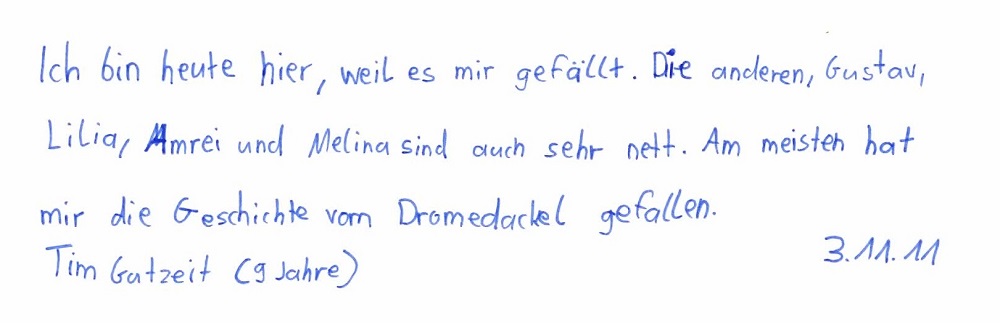 Ich bin heute hier, weil es mir gefällt. Die anderen, Gustav,
Lilia, Amrei und Melina sind auch sehr nett. Am meisten hat
mir die Geschichte vom Dromedackel gefallen.
Tim Gutzeit (9 Jahre) 3.11.11